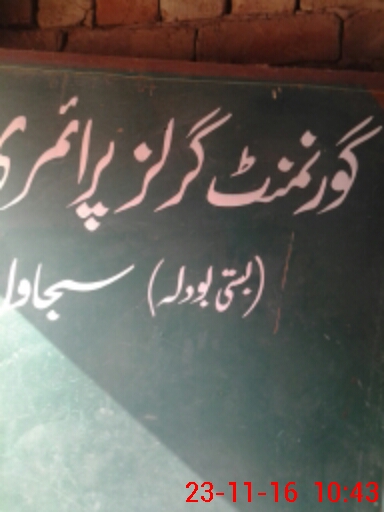 گورنمنٹ گرلز پرائمری
(بستی بودلہ) سجاول
23-11-16 10:43